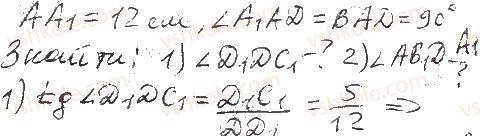 AA₁ = 12 см, ∠A₁AD = BAD = 90°
Знайти: 1) ∠D₁DC₁ - ? 2) ∠AB₁D - A₁ ?
1) tg ∠D₁DC₁ = D₁C₁ / DD₁ = 5/12 =>